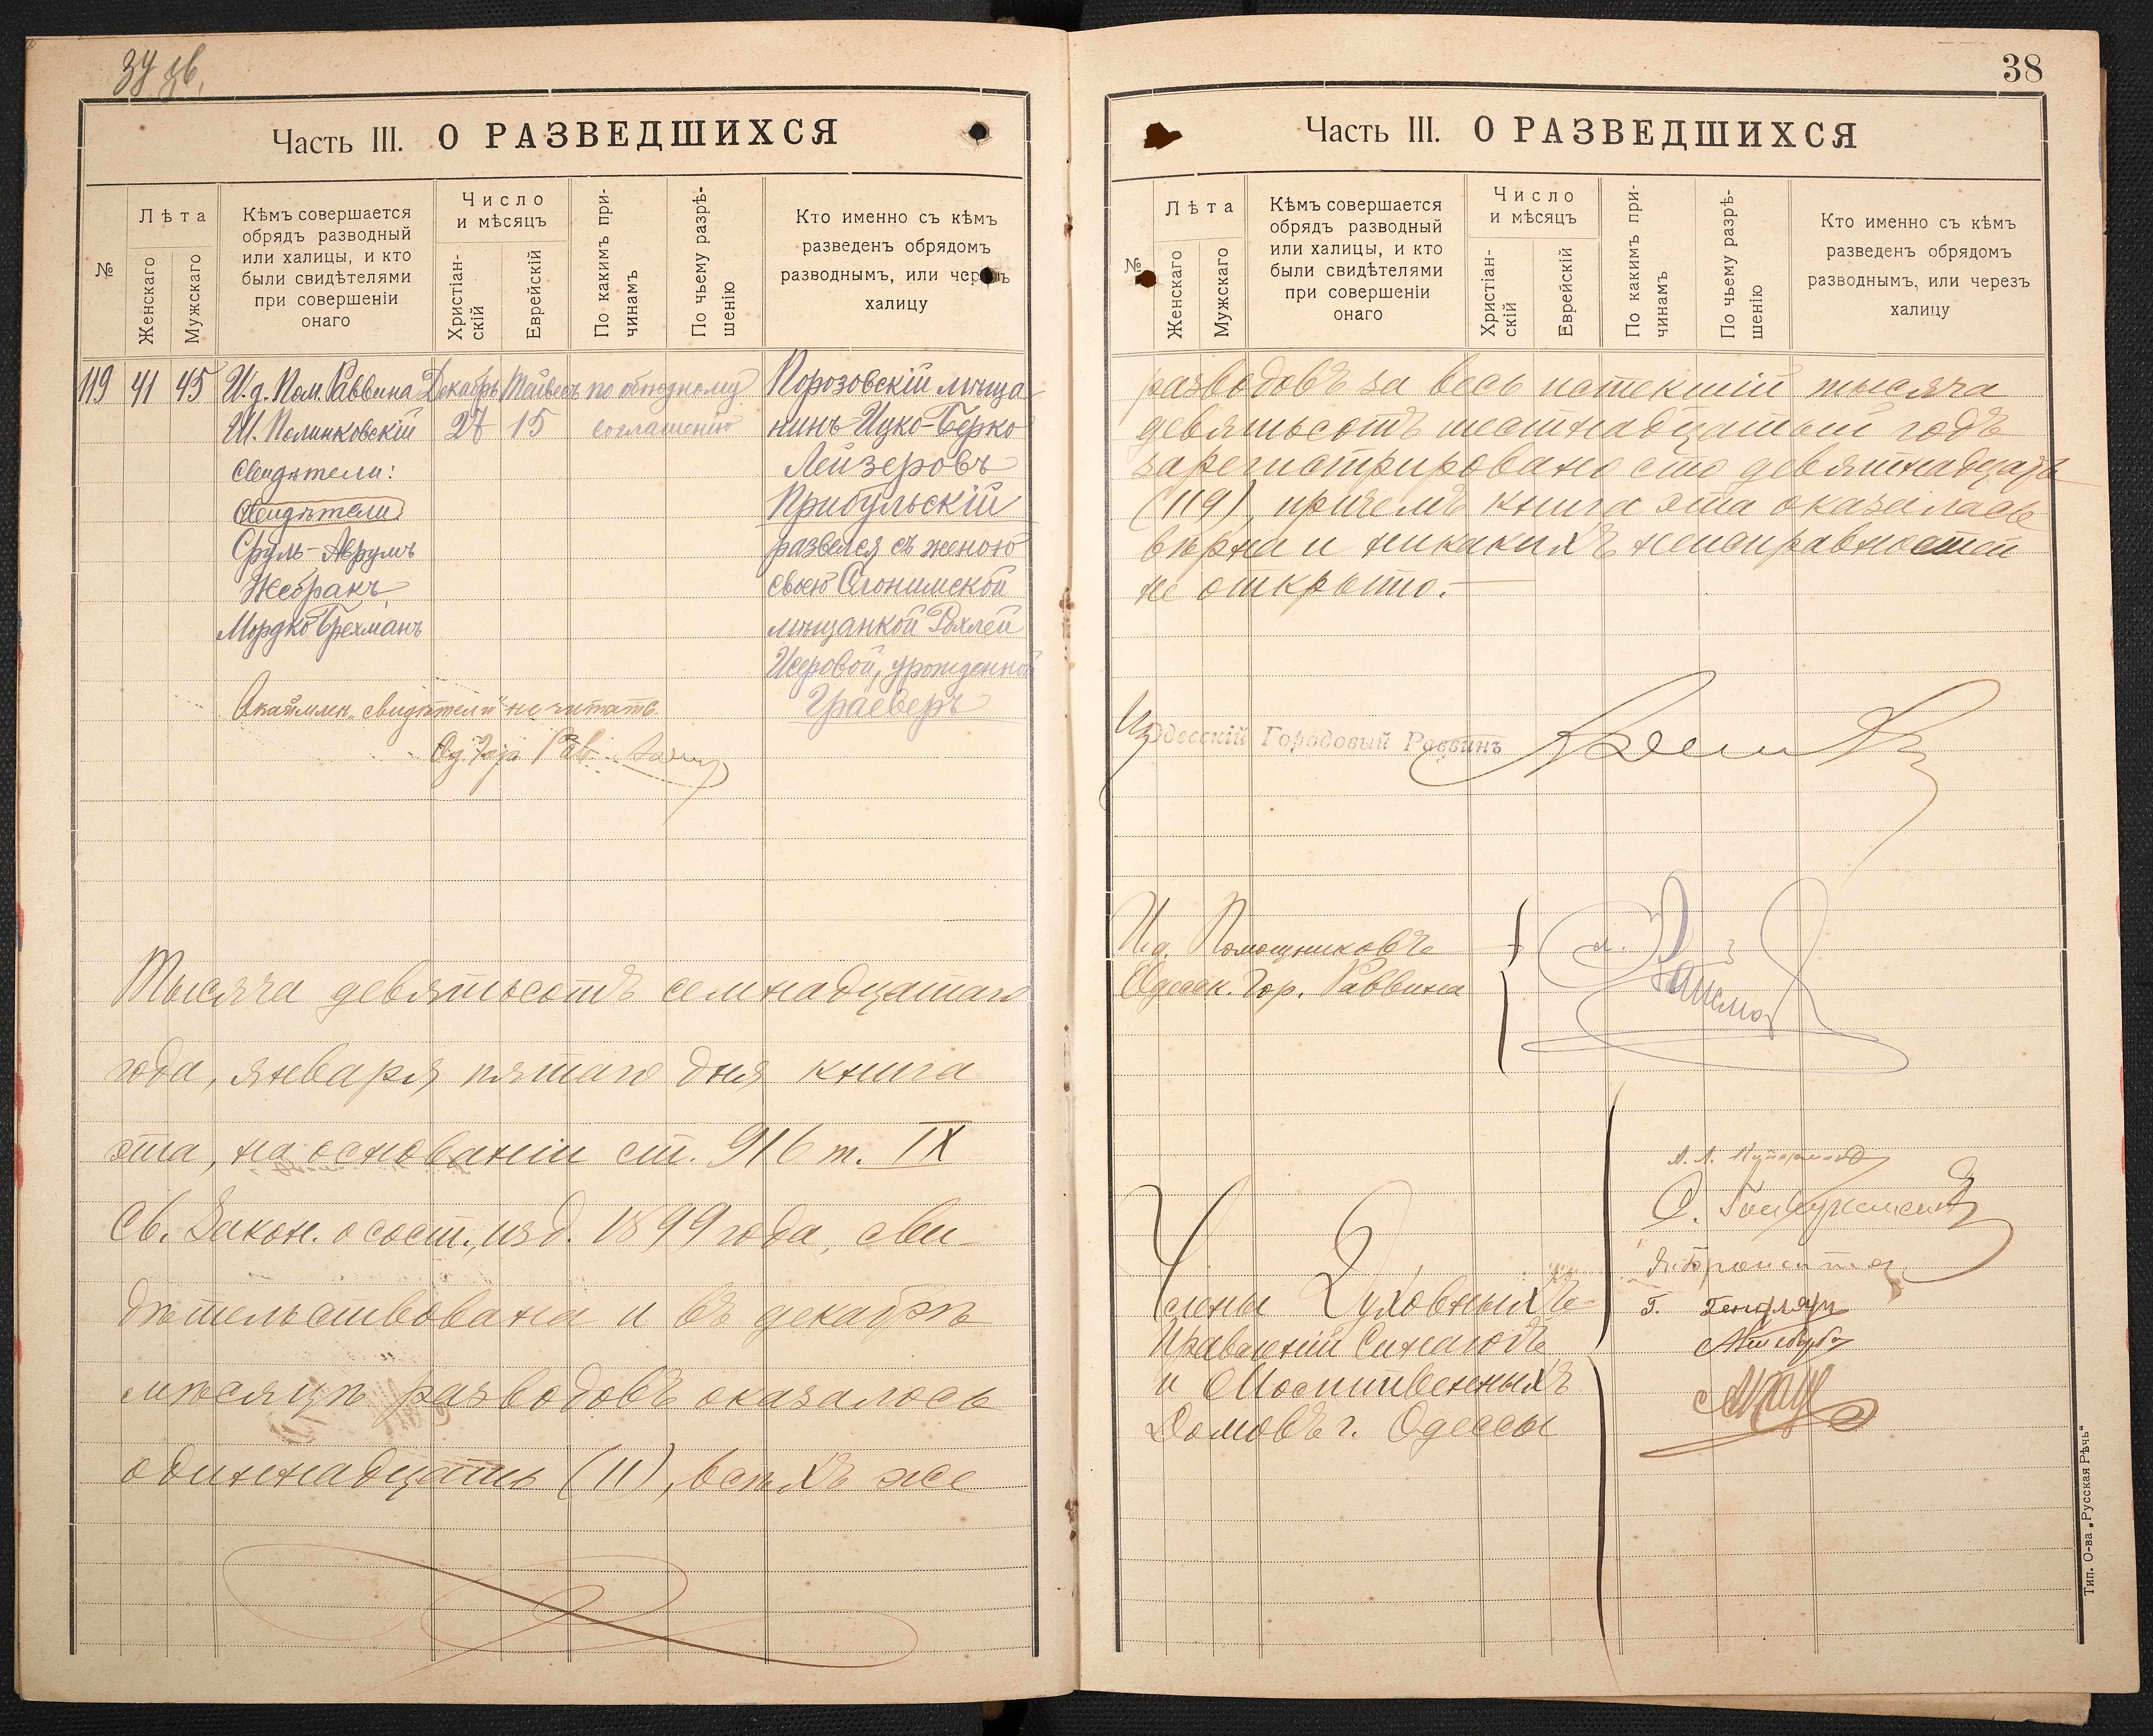 Часть III. О РАЗВЕДШИХСЯ
№
Лѣта
Женскаго
Мужскаго
Кѣмъ совершается
обрядъ разводный
или халицы, и кто
были свидѣтелями
при совершеніи
онаго
Число
и мѣсяцъ
Христіан-
скій
Еврейскій
По какимъ при-
чинамъ
По чьему разрѣ-
шенію
Кто именно съ кѣмъ
разведенъ обрядомъ
разводнымъ, или черезъ
халицу
119 41 45 И. д. Пом. Раввина Декабрь Тайвесъ по обоюдному
Ш. Полинковскій 27 15 согласію
Свидѣтели:
Свидѣтели
Сруль-Аврумъ
Жебракъ,
Мордко Брехманъ
Порозовскій мѣща-
нинъ Ицко-Берко
Лейзеровъ
Прибульскій
развелся съ женою
своею Слонимской
мѣщанкой Рохлей
Исеровой, урожденной
Граеверъ
„свидѣтели" не читать.
Од. Гор. Рав.
Тысяча девятьсотъ семнадцатаго
года, января пятаго дня книга
эта, на основаніи ст. 916 т. IX
Св. Закон. о сост., изд. 1899 года, сви-
дѣтельствована и въ декабрѣ
мѣсяцѣ разводовъ оказалось
одиннадцать (11), всѣхъ же
38
Часть III. О РАЗВЕДШИХСЯ
№
Лѣта
Женскаго
Мужскаго
Кѣмъ совершается
обрядъ разводный
или халицы, и кто
были свидѣтелями
при совершеніи
онаго
Число
и мѣсяцъ
Христіан-
скій
Еврейскій
По какимъ при-
чинамъ
По чьему разрѣ-
шенію
Кто именно съ кѣмъ
разведенъ обрядомъ
разводнымъ, или черезъ
халицу
разводовъ за весь истекшій тысяча
девятьсотъ шестнадцатый годъ
зарегистрировано сто девятнадцать
(119), причемъ книга эта оказалась
вѣрна и никакихъ неисправностей
не открыто.—
Одесскій Городовый Раввинъ
И. д. Помощниковъ
Одесск. Гор. Раввина
Члены Духовныхъ
Правленій Синагогъ
и Молитвенныхъ
Домовъ г. Одессы
Тип. О-ва „Русская Рѣчь"